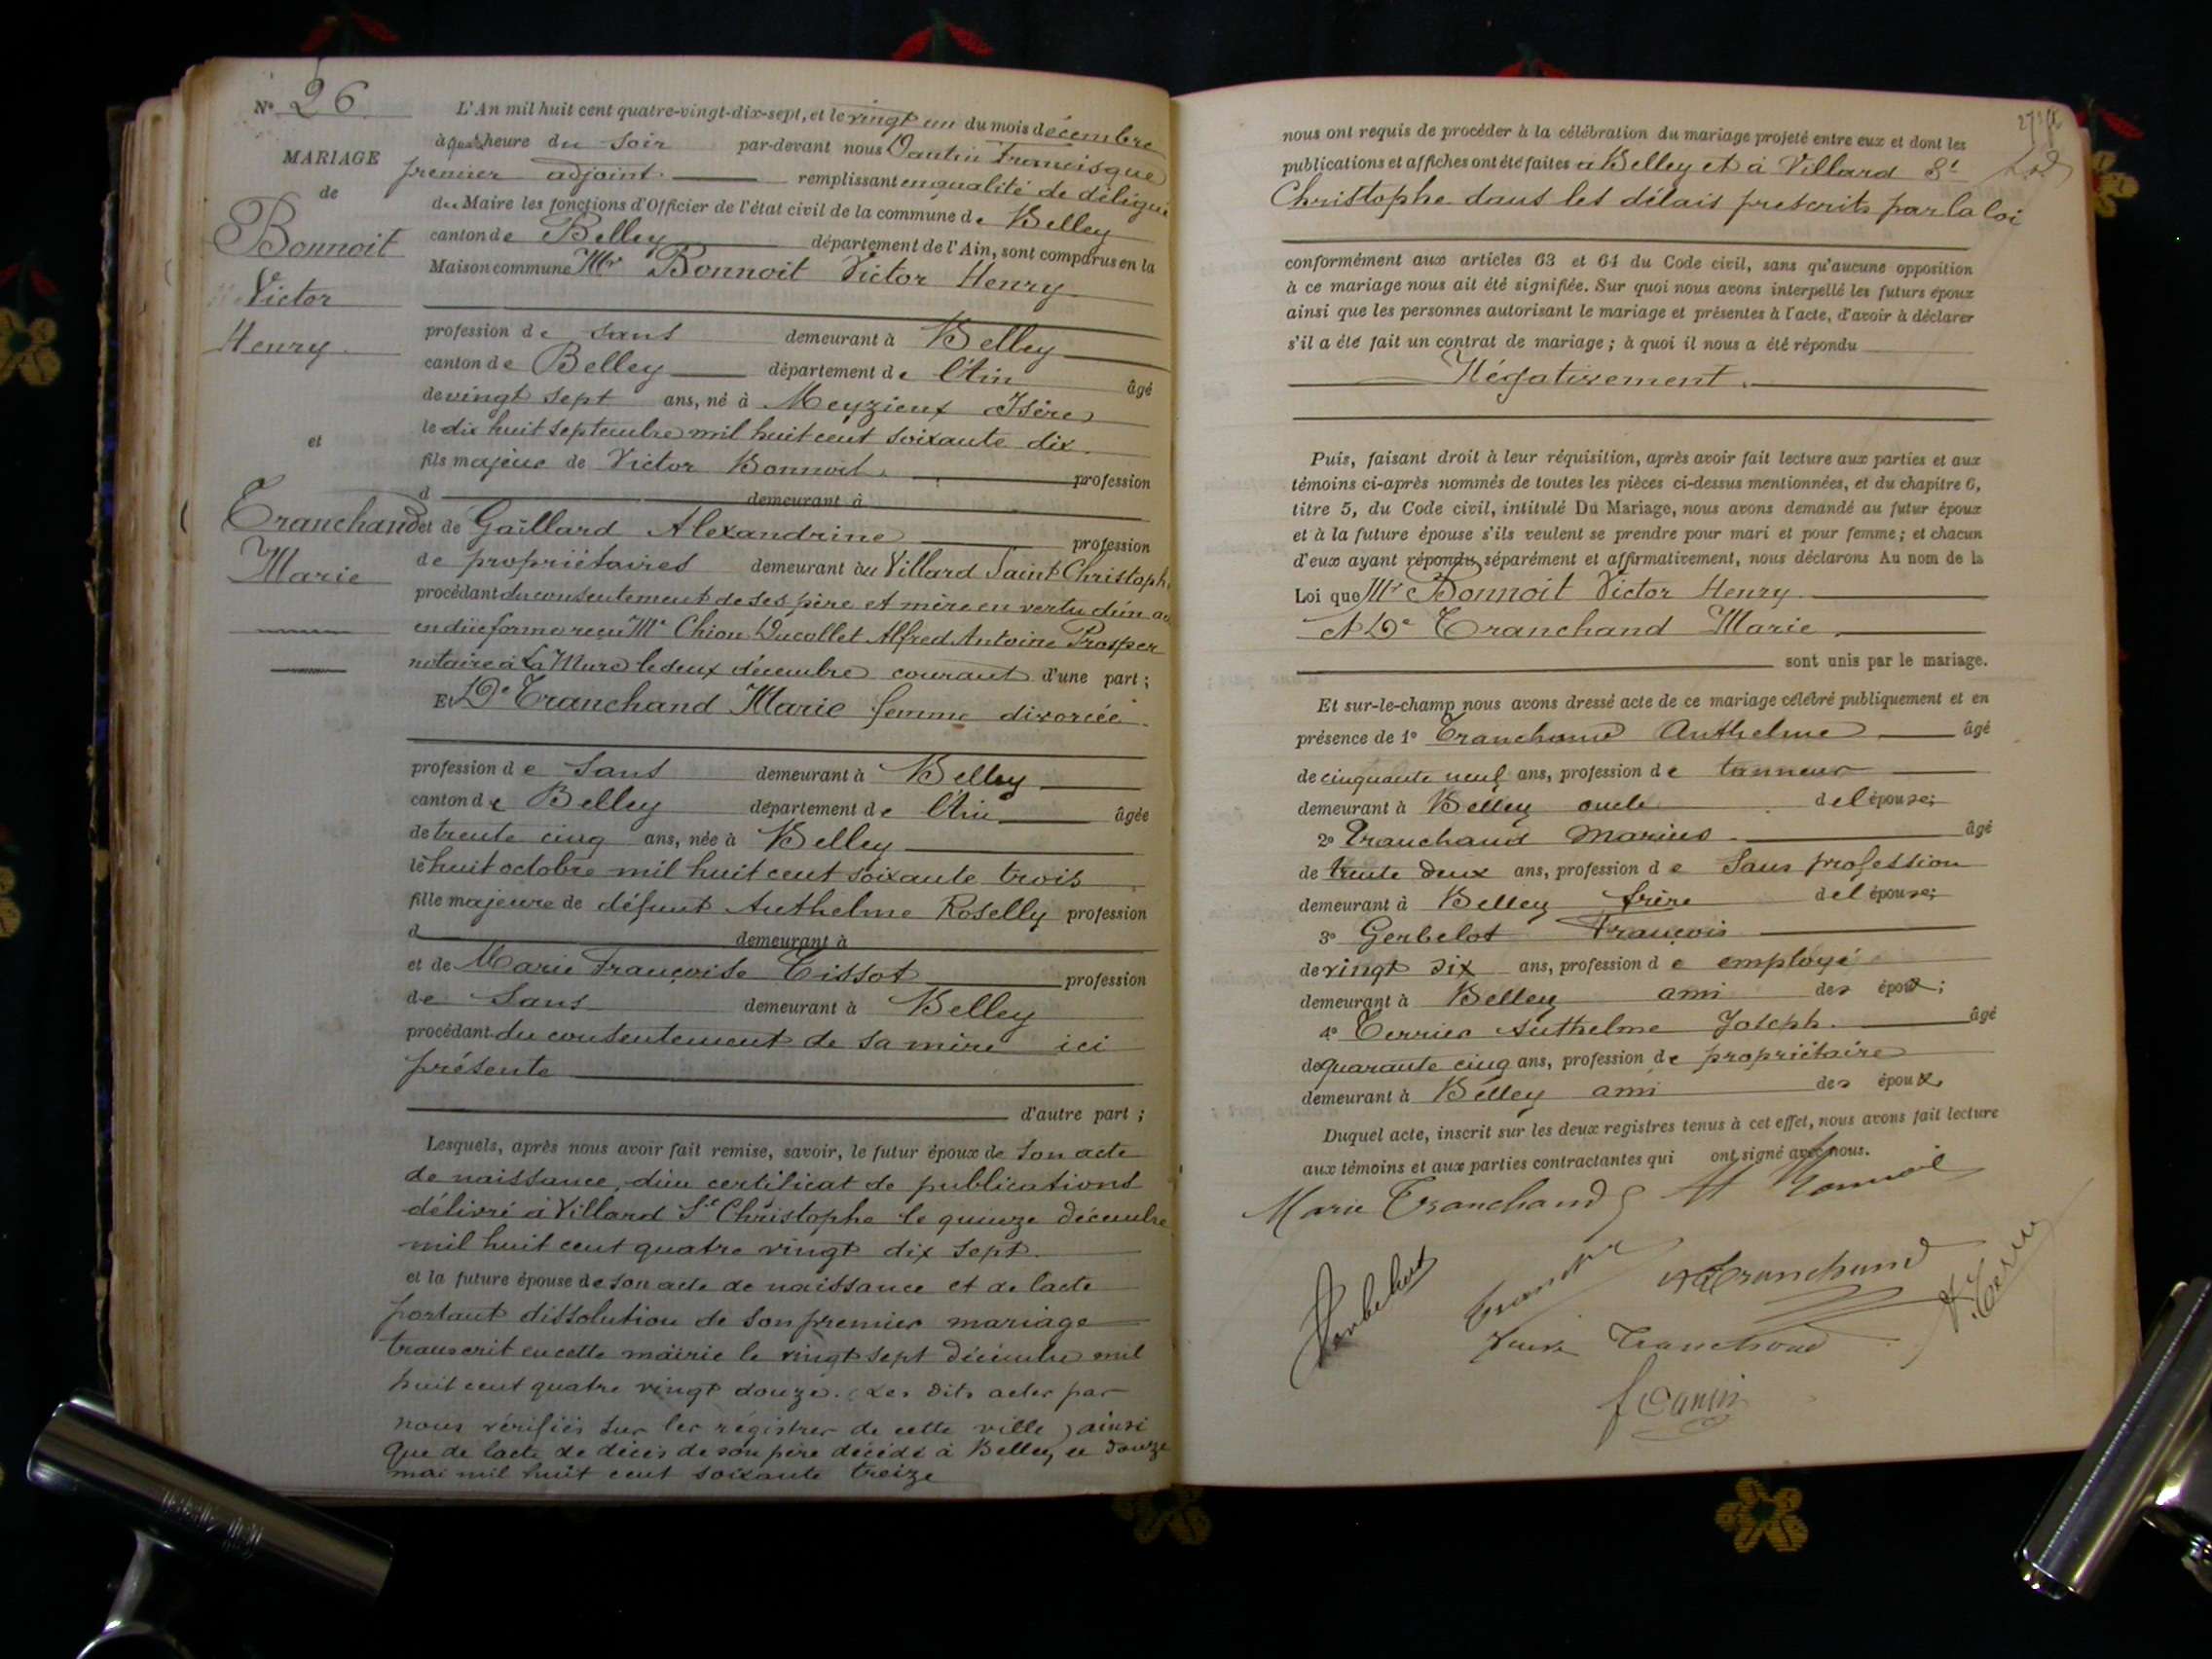 Nº 26
MARIAGE
de
Bonnoit
Victor
Henry
et
Tranchand
Marie
L'An mil huit cent quatre-vingt-dix-sept, et le vingt un du mois décembre
à quatre heure du soir par-devant nous Dantin Francisque
premier adjoint remplissant en qualité de délégué
du Maire les fonctions d'Officier de l'état civil de la commune de Belley
canton de Belley département de l'Ain, sont comparus en la
Maison commune Mr Bonnoit Victor Henry
profession de sans demeurant à Belley
canton de Belley département de l'Ain âgé
de vingt sept ans, né à Meyzieux Isère
le dix huit septembre mil huit cent soixante dix
fils majeur de Victor Bonnoit profession
d demeurant à
et de Gaillard Alexandrine profession
de propriétaires demeurant au Villard Saint Christoph.
procédant du consentement de ses père et mère en vertu d'un ac
en due forme reçu Me Chion Ducollet Alfred Antoine Prosper
notaire à La Mure le deux décembre courant d'une part ;
Et De Tranchand Marie femme divorcée
profession de sans demeurant à Belley
canton de Belley département de l'Ain âgée
de trente cinq ans, née à Belley
le huit octobre mil huit cent soixante trois
fille majeure de défunt Anthelme Roselly profession
d demeurant à
et de Marie Françoise Tissot profession
de sans demeurant à Belley
procédant du consentement de sa mère ici
présente
d'autre part ;
Lesquels, après nous avoir fait remise, savoir, le futur époux de son acte
de naissance, d'un certificat de publications
délivré à Villard St Christophe le quinze décembre
mil huit cent quatre vingt dix sept
et la future épouse de son acte de naissance et de l'acte
portant dissolution de son premier mariage
transcrit en cette mairie le vingt sept décembre mil
huit cent quatre vingt douze. (Les dits actes par
nous vérifiés sur les régistres de cette ville) ainsi
que de l'acte de décès de son père décédé à Belley, le douze
mai mil huit cent soixante treize
nous ont requis de procéder à la célébration du mariage projeté entre eux et dont les
publications et affiches ont été faites à Belley et à Villard St
Christophe dans les délais prescrits par la loi
conformément aux articles 63 et 64 du Code civil, sans qu'aucune opposition
à ce mariage nous ait été signifiée. Sur quoi nous avons interpellé les futurs époux
ainsi que les personnes autorisant le mariage et présentes à l'acte, d'avoir à déclarer
s'il a été fait un contrat de mariage ; à quoi il nous a été répondu
Négativement.
Puis, faisant droit à leur réquisition, après avoir fait lecture aux parties et aux
témoins ci-après nommés de toutes les pièces ci-dessus mentionnées, et du chapitre 6,
titre 5, du Code civil, intitulé Du Mariage, nous avons demandé au futur époux
et à la future épouse s'ils veulent se prendre pour mari et pour femme ; et chacun
d'eux ayant répondu séparément et affirmativement, nous déclarons Au nom de la
Loi que Mr Bonnoit Victor Henry
et De Tranchand Marie
sont unis par le mariage.
Et sur-le-champ nous avons dressé acte de ce mariage célébré publiquement et en
présence de 1º Tranchand Anthelme âgé
de cinquante neuf ans, profession de tanneur
demeurant à Belley oncle de l'épouse;
2º Tranchand Marius âgé
de trente deux ans, profession de Sans profession
demeurant à Belley frère de l'épouse;
3º Gerbelot François
de vingt six ans, profession de employé
demeurant à Belley ami des époux;
4º Terrier Anthelme Joseph. âgé
de quarante cinq ans, profession de propriétaire
demeurant à Belley ami des époux
Duquel acte, inscrit sur les deux registres tenus à cet effet, nous avons fait lecture
aux témoins et aux parties contractantes qui ont signé avec nous.
Marie Tranchand Bonnoit
Tranchand
Tranchand